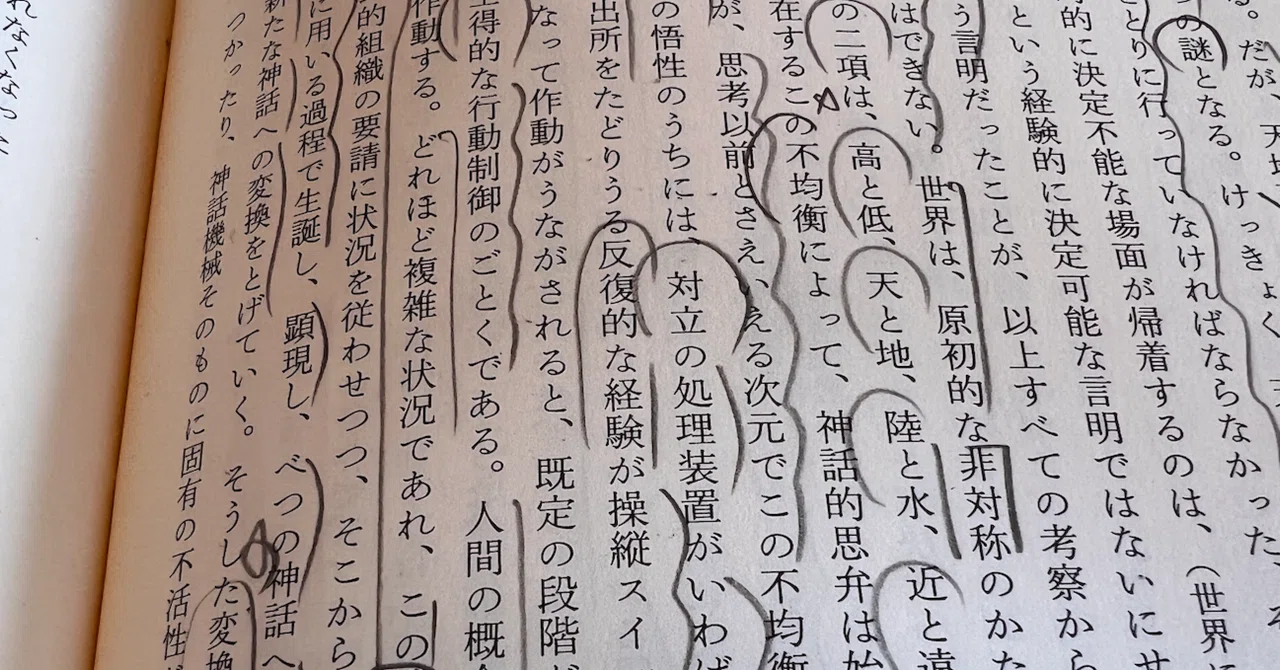 る。だが、天地
の謎となる。けっきょく
とりに行っていなければならなかった
的に決定不能な場面が帰着するのは、(世界
という経験的に決定可能な言明ではないにせ
う言明だったことが、以上すべての考察から
はできない。世界は、原初的な非対称のかた
の二項は、高と低、天と地、陸と水、近と遠
在するこの不均衡によって、神話的思弁は始
が、思考以前とさえいえる次元でこの不均衡
の悟性のうちには、対立の処理装置がいわば
出所をたどりうる反復的な経験が操縦スイ
なって作動がうながされると、既定の段階が
得的な行動制御のごとくである。人間の概念
作動する。どれほど複雑な状況であれ、この
的組織の要請に状況を従わせつつ、そこから
に用いる過程で生誕し、顕現し、べつの神話へ
新たな神話への変換をとげていく。そうした変換
つかったり、神話機械そのものに固有の不活性
れなくなった